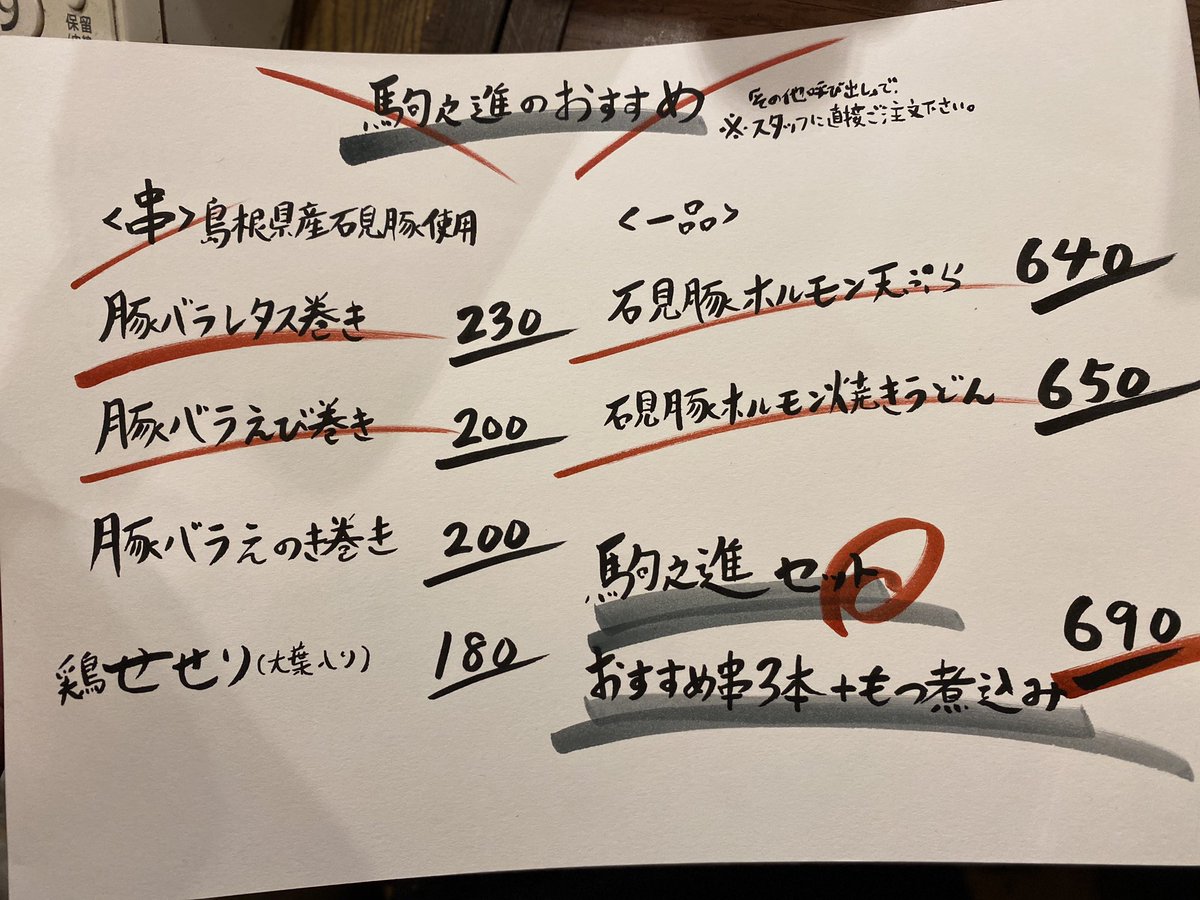 保留
駒之進のおすすめ
その他呼び出しで、
※スタッフに直接ご注文下さい。
<串>島根県産石見豚使用
豚バラレタス巻き 230
豚バラえび巻き 200
豚バラえのき巻き 200
鶏せせり(大葉入り) 180
<一品>
石見豚ホルモン天ぷら 640
石見豚ホルモン焼きうどん 650
駒之進セット
おすすめ串3本+もつ煮込み 690